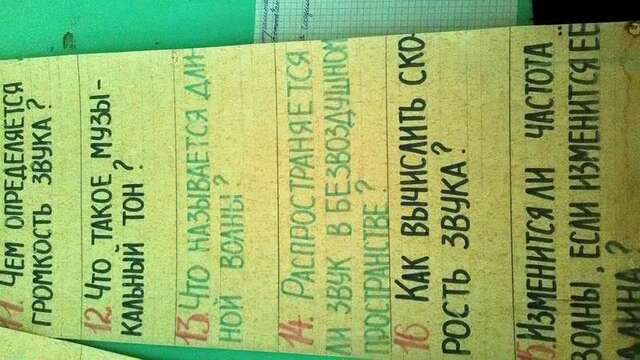 11. ЧЕМ ОПРЕДЕЛЯЕТСЯ
ГРОМКОСТЬ ЗВУКА?
12. ЧТО ТАКОЕ МУЗЫ-
КАЛЬНЫЙ ТОН?
13. ЧТО НАЗЫВАЕТСЯ ДЛИ-
НОЙ ВОЛНЫ?
14. РАСПРОСТРАНЯЕТСЯ
ЛИ ЗВУК В БЕЗВОЗДУШНОМ
ПРОСТРАНСТВЕ?
16 КАК ВЫЧИСЛИТЬ СКО-
РОСТЬ ЗВУКА?
15. ИЗМЕНИТСЯ ЛИ ЧАСТОТА
ВОЛНЫ, ЕСЛИ ИЗМЕНИТСЯ ЕЁ
ДЛИНА?